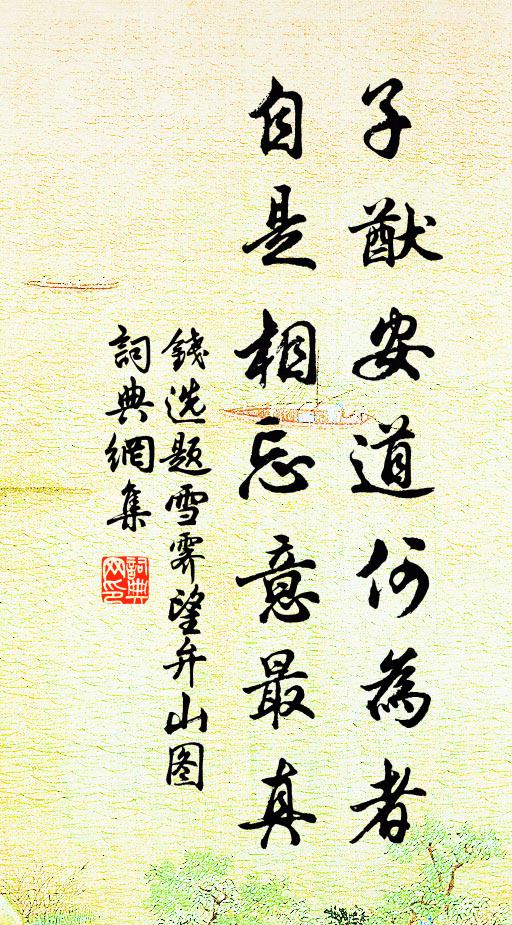 子猷安道何為者
自是相忘意最真
錢选题雪霁望弁山图
詞典網集
詞典网印